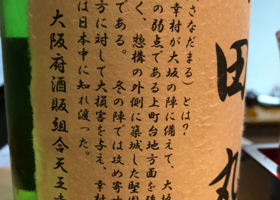 田丸
さなだまる)とは?
幸村が大坂の陣に備えて、大坂
の弱点である上町台地方面を
く、惣構の外側に築城した堅固
である。 冬の陣では攻め寄
方に対して大損害を与え、幸村
は日本中に知れ渡った。
大阪府酒販組合天王寺